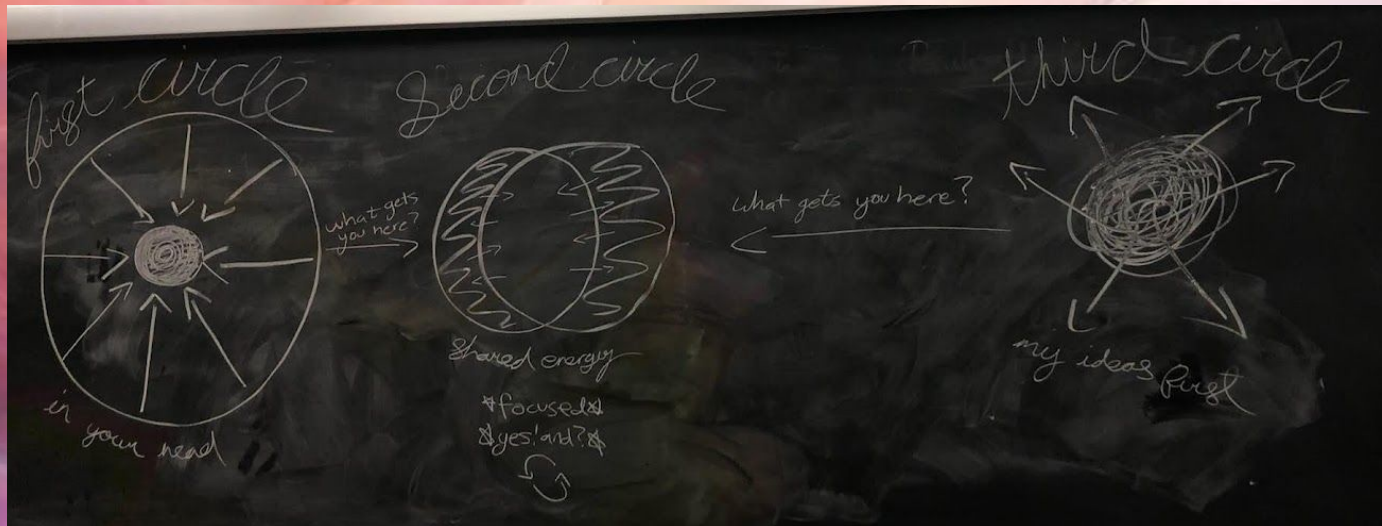 first circle
in your head
what gets
you here?
Second circle
Shared energy
focused
yes! and?
what gets you here?
third circle
my ideas first